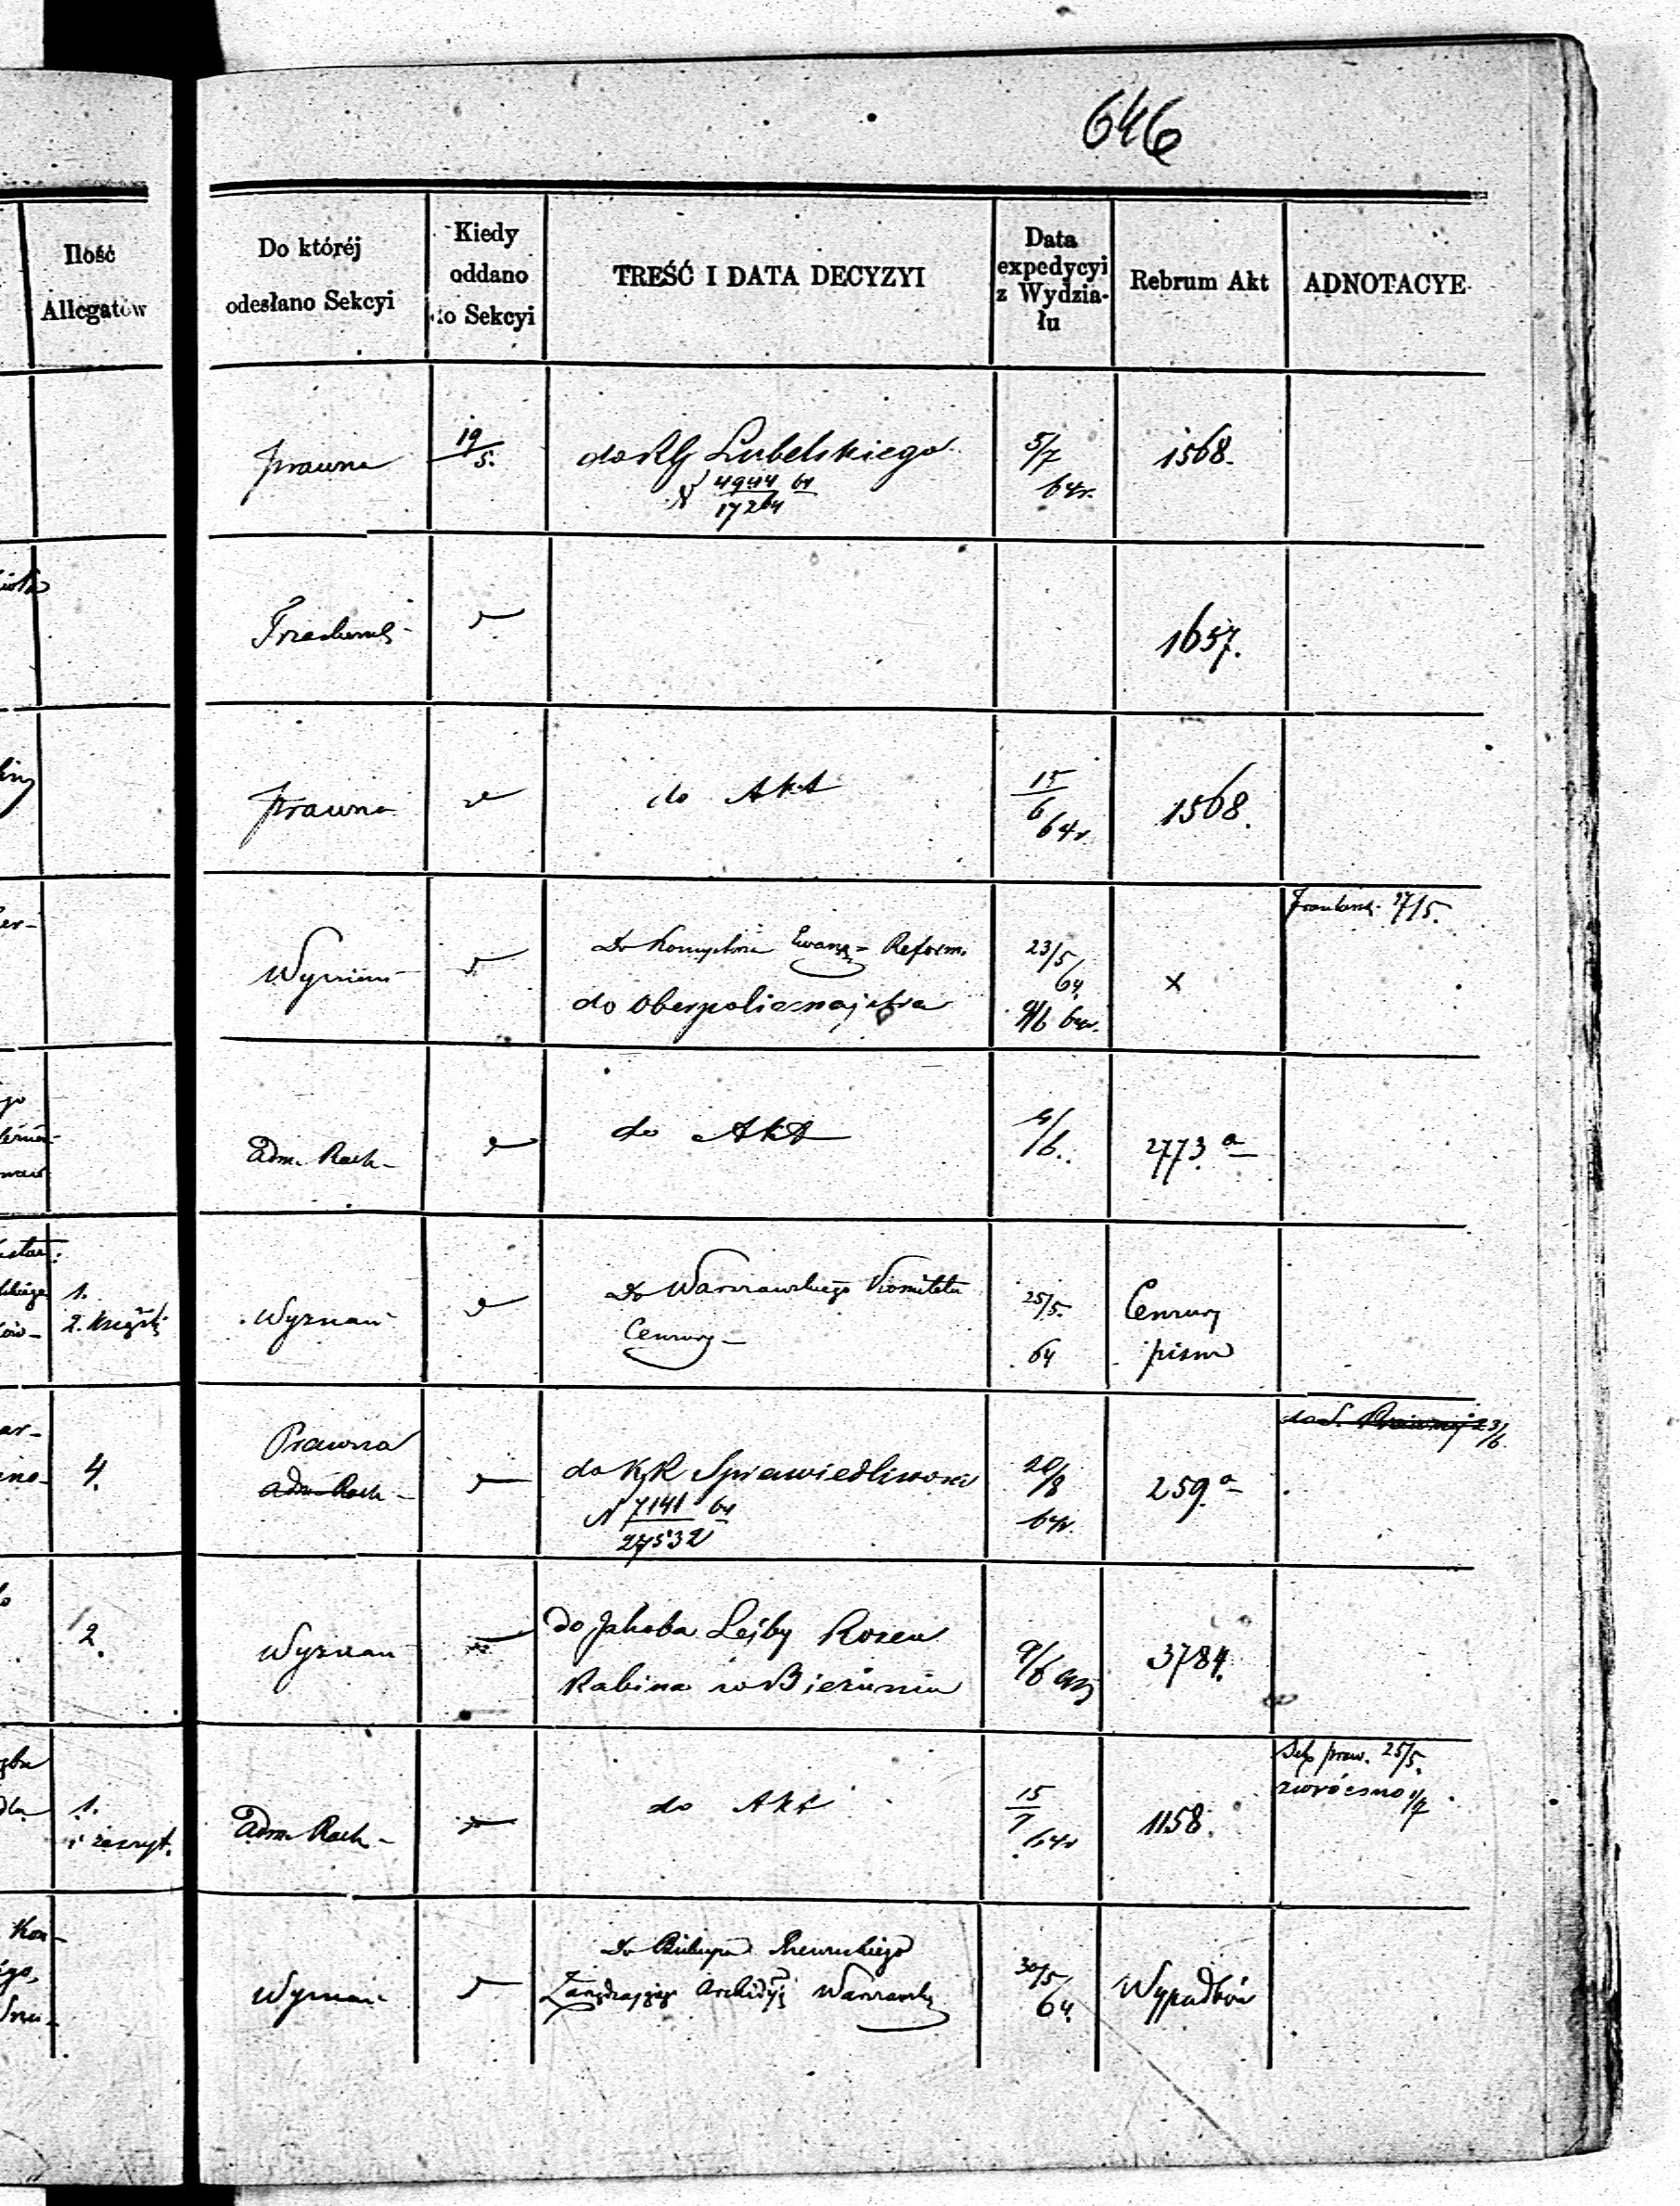 646
Ilość
Allegatów
Do któréj
odesłano Sekcyi
Kiedy
oddano
do Sekcyi
TREŚĆ I DATA DECYZYI
Data
expedycyi
z Wydzia-
łu
Rebrum Akt
ADNOTACYE
Prawna
19/5.
do RG Lubelskiego
N 4944/17264 64
5/7
64r.
1568.
1657.
Prawna
do Akt
15/6
64r.
1568.
17/5.
Wyznań
Do Konsystorza Ewang= Reform.
do Oberpolicmajstra
23/5
64
9/6 64r.
x
Adm. Rach-
do Akt
4/6.
2773 a
1.
2. Książki
Wyznań
Do Warszawskiego Komitetu
Cenzury-
25/5.
64
Cenzury
pism
4.
Prawna
Adm. Rach-
do KR Sprawiedliwości
N 7141/27532 64
20/8
64r.
259 a
do S. Prawnej 23/6.
2.
Wyznań
do Jakoba Lejby Rozen
Rabina w Bieżuniu
9/6
3784.
1.
i zeszyt.
Adm. Rach-
do Akt
15/7
64r
1158.
Sek. praw. 25/5.
zwrócono 1/7
Wyznań
Do Biskupa Rzewuskiego
Zarządzającego Archidyec. Warszawską
30/5
64.
Wypadków